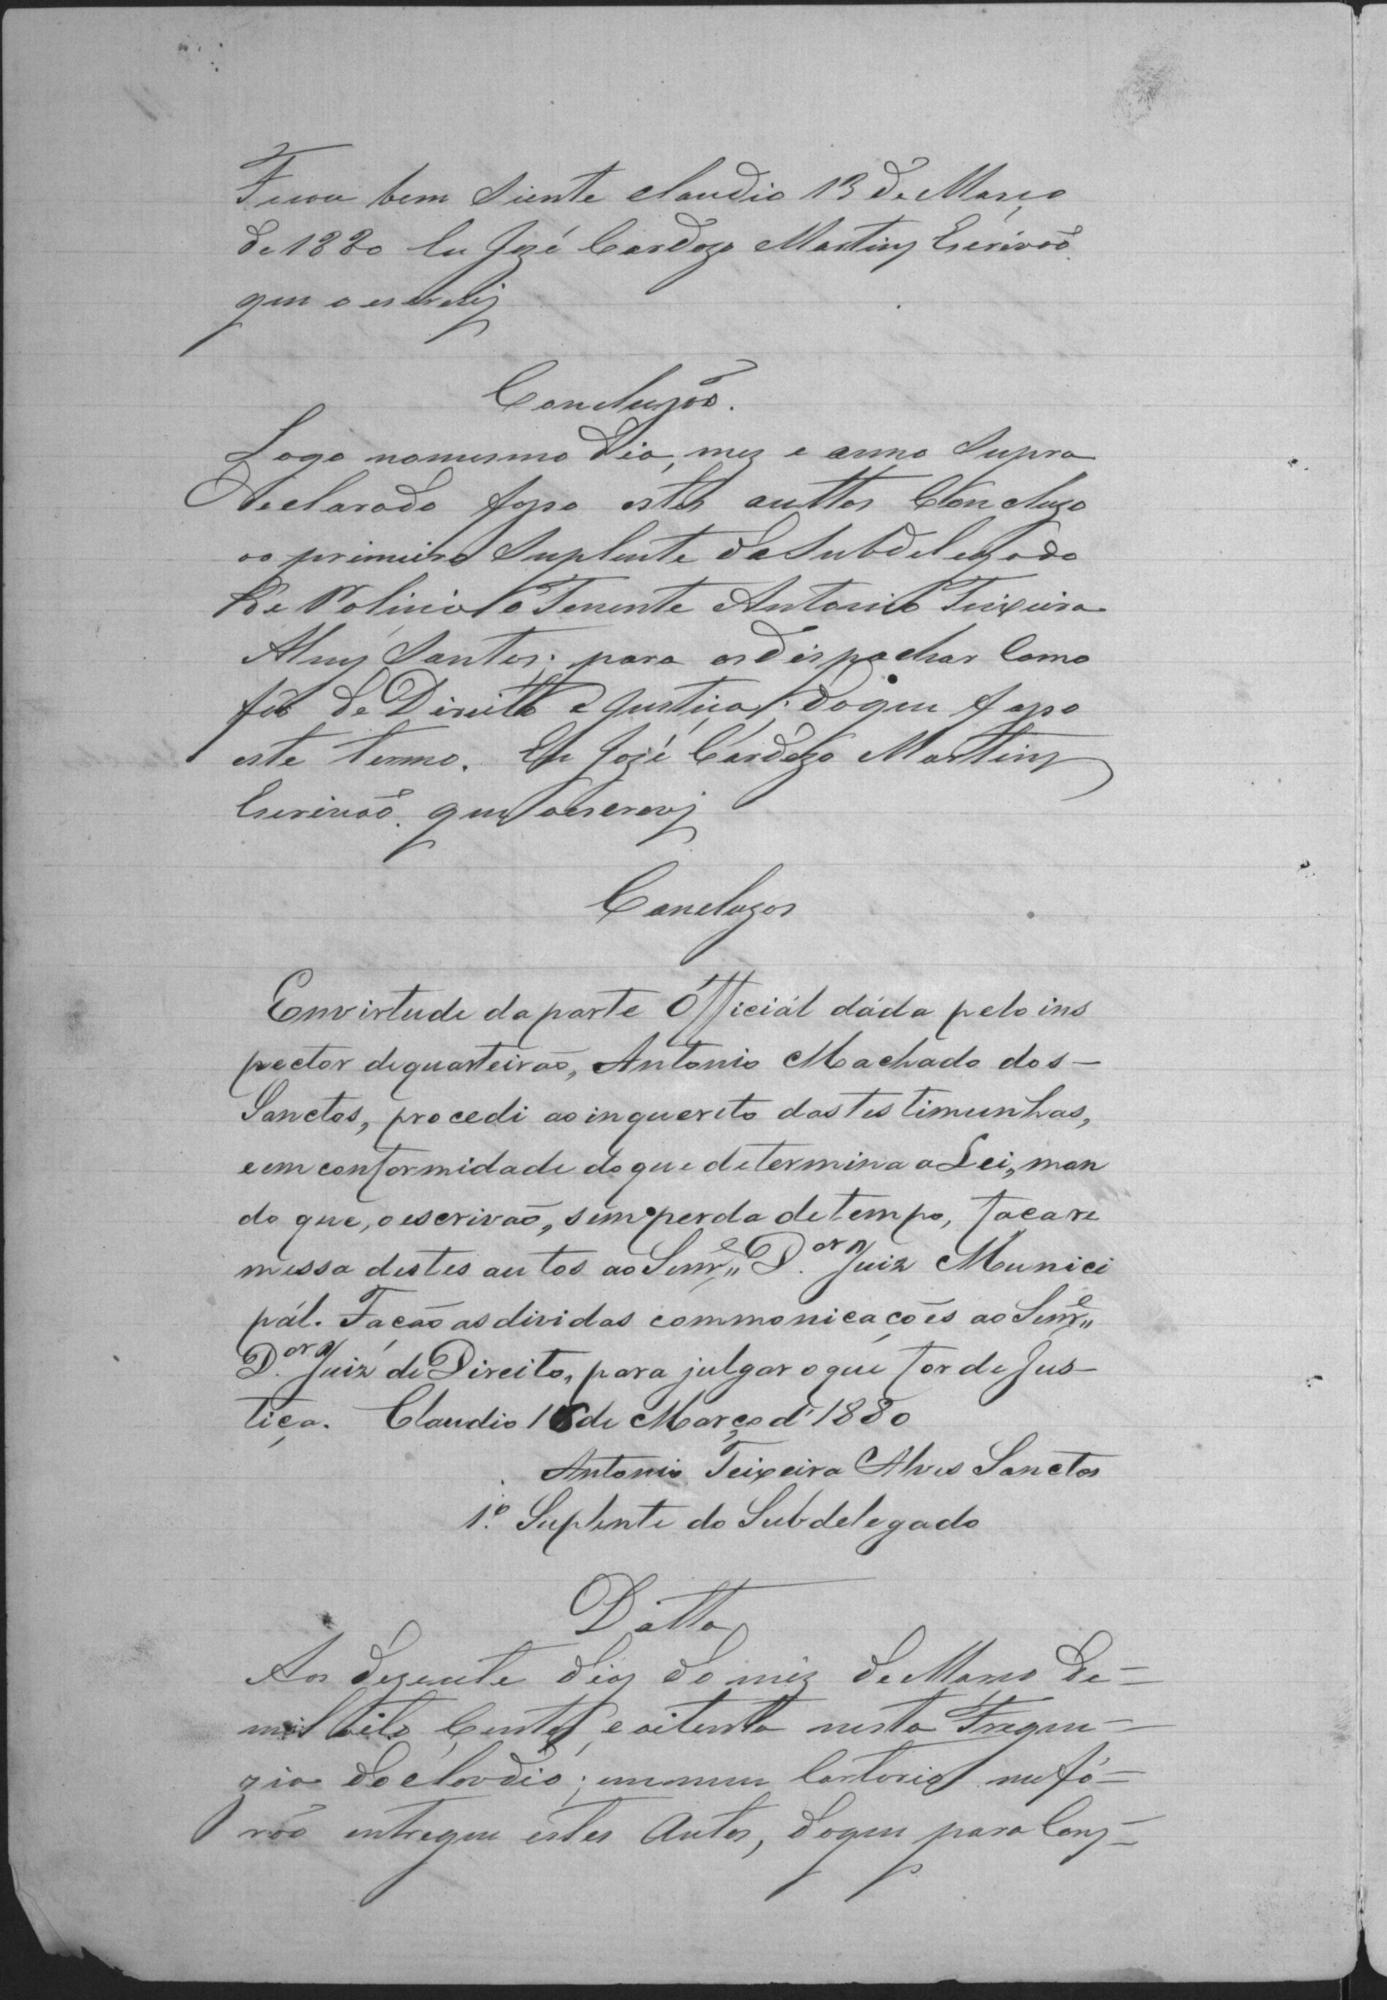 Ficou bem Siente Claudio 13 de Março
de 1880 Eu José Cardozo Martins Escrivão
que o escrevij
Concluzão.
Logo nomesmo dia, mez e anno Supra
declarado faço estes auttos Concluzo
ao primeiro Suplente do Subdelegado
de Policia o Tenente Antonio Teixeira
Alvez Santos; para os dispachar Como
fôr de Direitto e Justiça; do que faço
este termo. Eu José Cardozo Martins
Escrivão que o escrevj
Concluzos
Emvirtude da parte Official dáda pelo ins
pector dequarteirão, Antonio Machado dos—
Sanctos, procedi ao inquerito dastestimunhas,
e em conformidade do que determina a Lei, man
do que, o escrivão, sem perda de tempo, faça re
messa destes autos ao Senr. D.or Juiz Munici
pál. Facão as dividas commonicações ao Senr.
D.or Juiz de Direito, para julgar o que for de Jus—
tiça. Claudio 16 de Março d' 1880
Antonio Teixeira Alves Sanctos
1.º Suplente do Subdelegado
Datta
Aos dezeute dias do mêz de Março de—
mil oito Centos, e oitenta nesta Fregue—
zia do Claudio; em meu Cartorio me fo—
rão entregue estes Autos, do que para Cons—